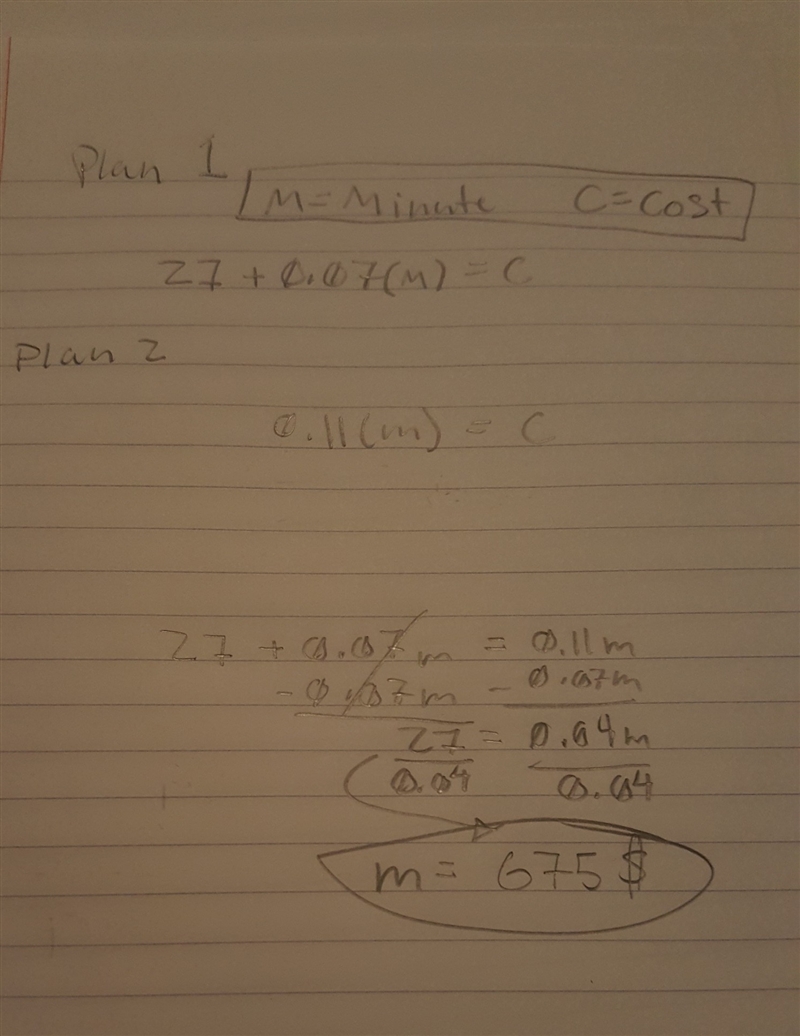 Plan 1
M = Minute C = Cost
27 + 0.07(m) = C
Plan 2
0.11(m) = C
27 + 0.07m = 0.11m
- 0.07m - 0.07m
27 = 0.04m
0.04 0.04
m = 675$